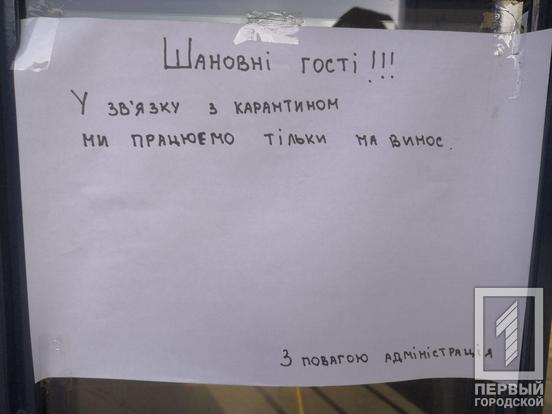 Шановні гості!!!
У зв'язку з карантином
ми працюємо тільки на винос.
З повагою адміністрація
1
ПЕРВЫЙ
ГОРОДСКОЙ